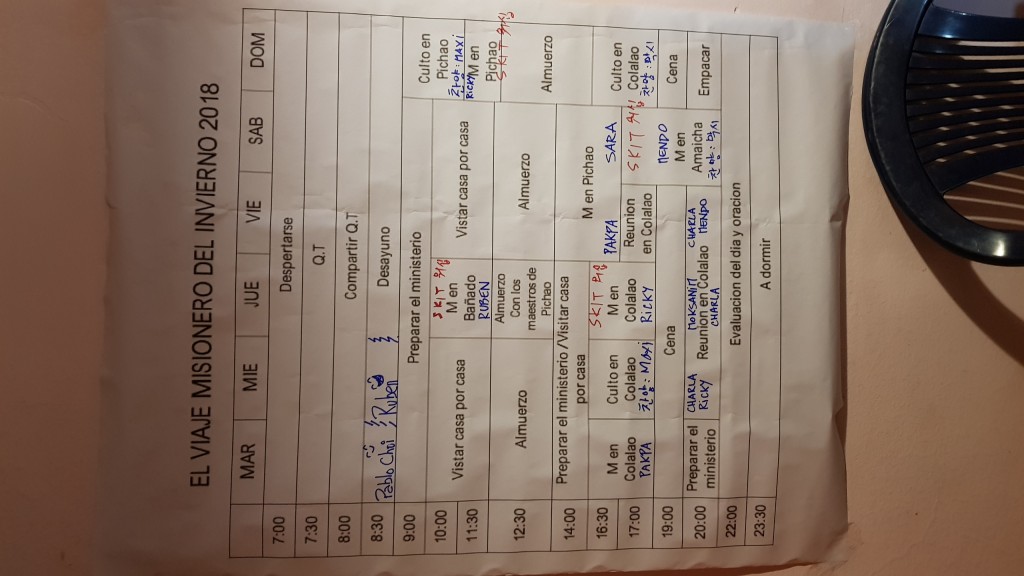 EL VIAJE MISIONERO DEL INVIERNO 2018
MAR MIE JUE VIE SAB DOM
7:00 Despertarse
7:30 Q.T
8:00 Compartir Q.T
8:30 Pablo Choi Ruben Desayuno
9:00 Preparar el ministerio
10:00
11:30
Vistar casa por casa
SKIT
M en
Bañado
RUBEN
Vistar casa por casa
Culto en
Pichao
찬양: MAXi
RICKY M en
Pichao
SKIT
12:30
Almuerzo
Almuerzo
Con los
maestros de
Pichao
Almuerzo
Almuerzo
14:00
Preparar el ministerio /Visitar casa
por casa
M en Pichao
PAKPA SARA
16:30
17:00
M en
Colalao
PAKPA
Culto en
Colalao
찬양: MAXi
SKIT
M en
Colalao
RICKY
Reunion
en Colalao
SKIT
MENDO
M en
Amaicha
찬양: 막시
Culto en
Colalao
찬양: 막시
19:00 Cena Cena
20:00
Preparar el
ministerio
CHARLA
RICKY
MOKSANIT
Reunion en Colalao
CHARLA
CHARLA
MENDO
Empacar
22:00 Evaluacion del dia y oracion
23:30 A dormir